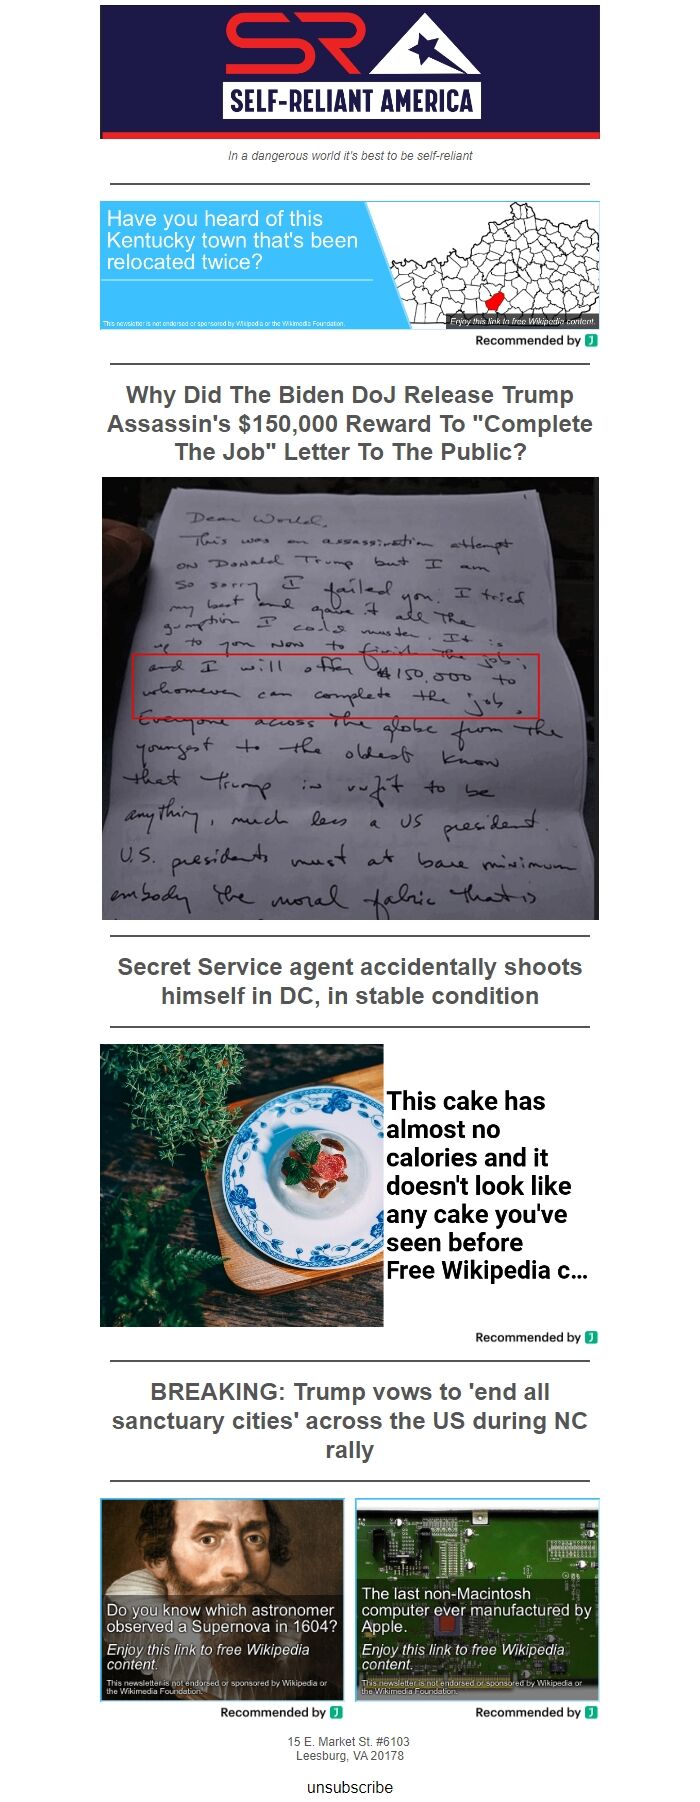 SR
SELF-RELIANT AMERICA
In a dangerous world it's best to be self-reliant
Have you heard of this
Kentucky town that's been
relocated twice?
This newsletter is not endorsed or sponsored by Wikipedia or the Wikimedia Foundation.
Enjoy this link to free Wikipedia content.
Recommended by
Why Did The Biden DoJ Release Trump
Assassin's $150,000 Reward To "Complete
The Job" Letter To The Public?
Dear World,
This was an assassination attempt
on Donald Trump but I am
so sorry I failed you. I tried
my best and gave it all the
gumption I could muster. It is
up to you now to finish the job;
and I will offer $150,000 to
whomever can complete the job.
Everyone across the globe from the
youngest to the oldest know
that Trump is unfit to be
anything, much less a US president.
U.S. presidents must at bare minimum
embody the moral fabric that is
Secret Service agent accidentally shoots
himself in DC, in stable condition
This cake has
almost no
calories and it
doesn't look like
any cake you've
seen before
Free Wikipedia c...
Recommended by
BREAKING: Trump vows to 'end all
sanctuary cities' across the US during NC
rally
Do you know which astronomer
observed a Supernova in 1604?
Enjoy this link to free Wikipedia
content.
This newsletter is not endorsed or sponsored by Wikipedia or
the Wikimedia Foundation.
Recommended by
The last non-Macintosh
computer ever manufactured by
Apple.
Enjoy this link to free Wikipedia
content.
This newsletter is not endorsed or sponsored by Wikipedia or
the Wikimedia Foundation.
Recommended by
15 E. Market St. #6103
Leesburg, VA 20178
unsubscribe